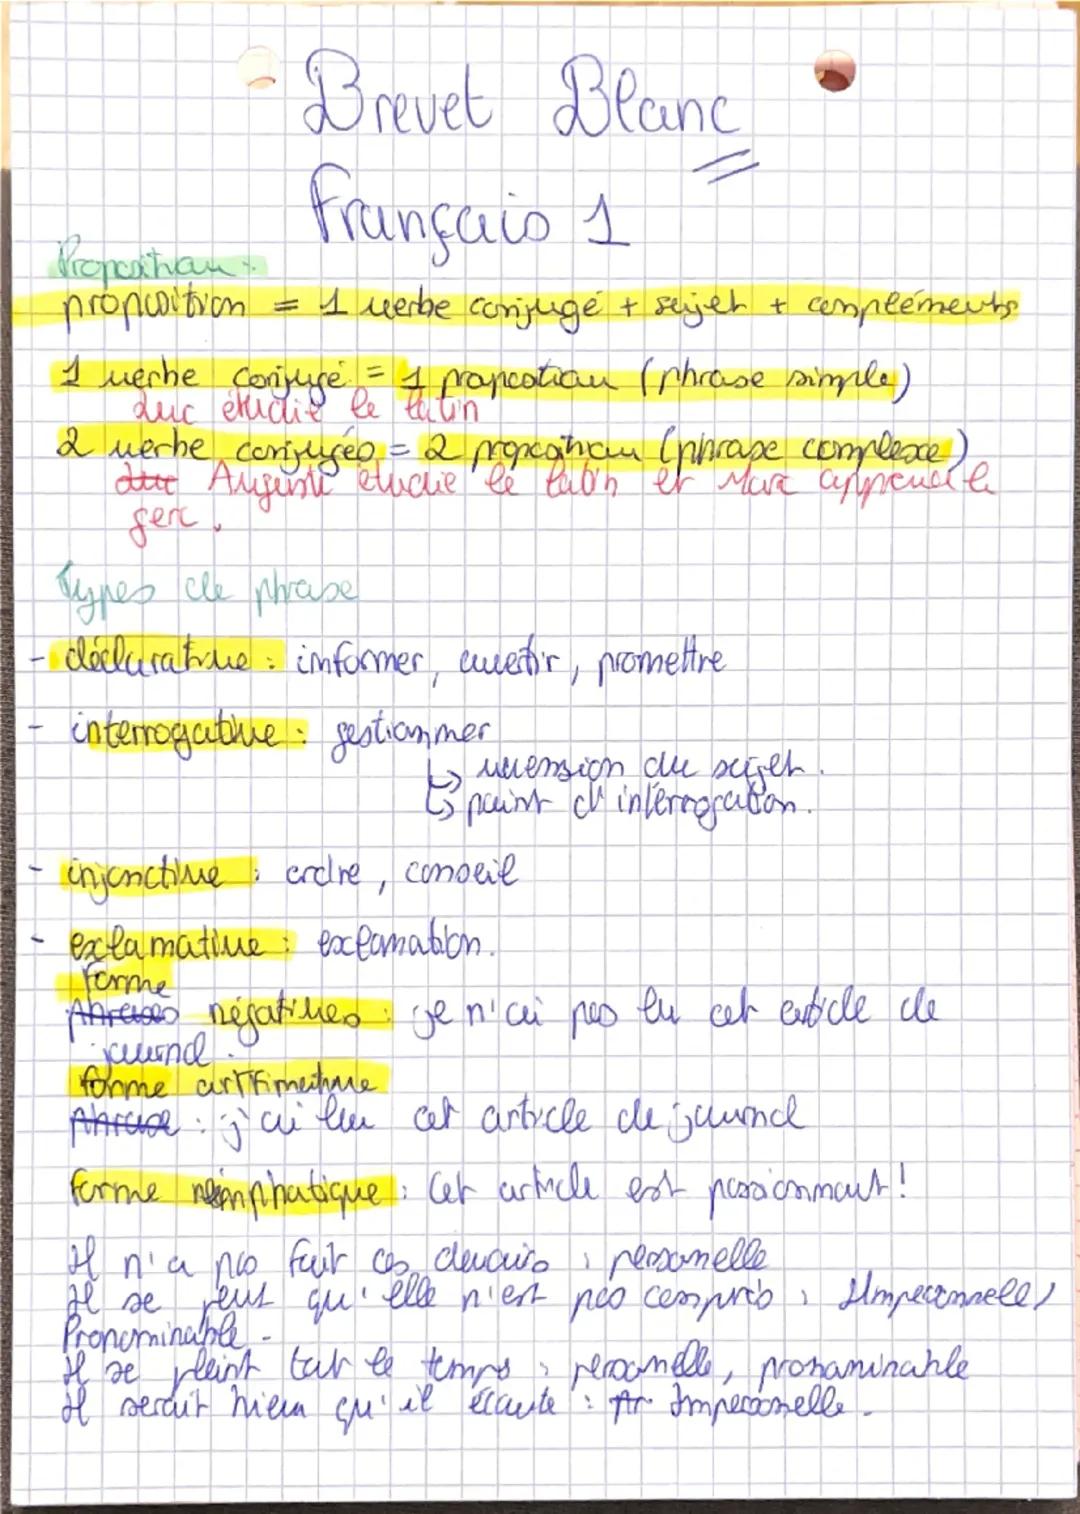 Brevet Blanc
français 1
Proposition :
proposition = 1 verbe conjugé + sujet + compléments
1 verbe conjugé = 1 proposition (phrase simple)
Luc étudie le latin
2 verbe conjugés = 2 proposition (phrase complexe)
Luc Auguste étudie le latin et Marc apprend le
gerc.
Types de phrase
- déclarative : informer, avertir, promettre
- interrogative : qestionner
↳ inversion du sujet.
↳ point d'interrogation.
- injonctive : ordre, conseil
- exclamative : exclamation.
forme
phrases négatives : je n'ai pas lu cet article de
journal.
forme affirmative
phrase : j'ai lu cet article de journal
forme emphatique : Cet article est passionnant !
Il n'a pas fait ces devoirs : personelle
Il se peut qu'elle n'est pas compris : Impersonnelle,
Pronominable.
Il se plaint tout le temps : personnelle, pronominable
Il serait bien qu'il écoute : Impersonelle.